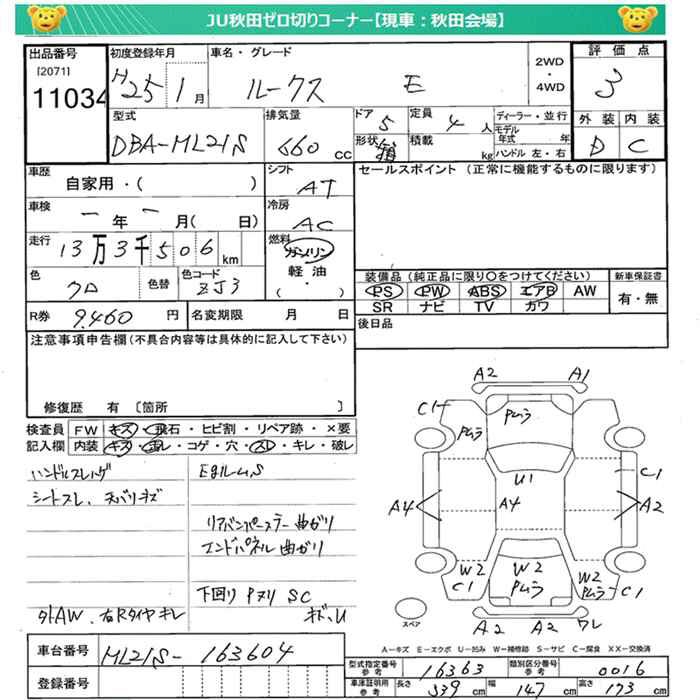 JU秋田ゼロ切りコーナー【現車：秋田会場】
出品番号 初度登録年月 車名・グレード 2WD・4WD 評価点
[2071] 11034 H25 1月 ルークス E 3
型式 排気量 ドア 定員 ディーラー・並行 外装 内装
DBA-ML21S 660 cc 5 4人 モデル年式 年 D C
形状 積載 kg ハンドル 左・右
車歴 シフト セールスポイント（正常に機能するものに限ります）
自家用・（ ） AT
車検 冷房
一年一月（ 日） AC
走行 燃料
13万3千506km ガソリン 軽油・（ ）
色 色替 色コード 装備品（純正品に限り○をつけてください） 新車保証書
クロ ZJ3 PS PW ABS エアB AW 有・無
SR ナビ TV カワ
R券 9,460円 名変期限 月 日 後日品
注意事項申告欄（不具合内容等は具体的に記入して下さい）
修復歴 有〔箇所 〕
検査員 FW キズ・飛石・ヒビ割・リペア跡・×要
記入欄 内装 キズ・汚レ・コゲ・穴・スレ・キレ・破レ
ハンドルスレ
シートスレ、天バリキズ
リアバンパーステー曲がり
エンドパネル曲がり
下回り Pヌリ SC
外AW、右Rタイヤキレ
A2 A1
C1 Pムラ Pムラ
U1 C1
A4 A4 A2
W2 C1 W2 Pムラ W2 Pムラ C1
スペア A2 A2 ワレ
A－キズ E－エクボ U－凹み W－補修跡 S－サビ C－腐食 XX－交換済
車台番号 ML21S-163604
登録番号
型式指定番号 参考 16363 類別区分番号 参考 0016
車庫証明用 参考 長さ 339cm 幅 147cm 高さ 173cm